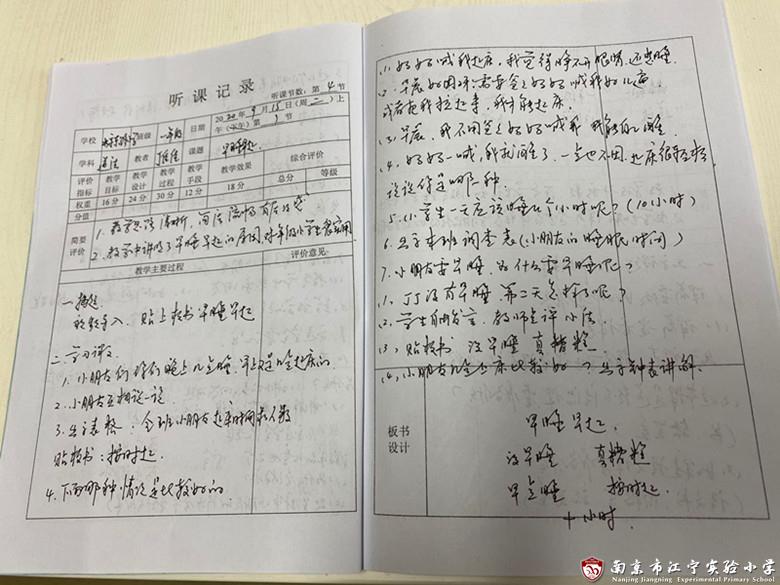 听课记录
听课节数：第4节
学校 班级 一年级 日期 2020年9月15日（周二）上
午（下午）第1节
学科 道法 教者 课题 早睡早起
评价指标 教学目标 教学设计 教学过程 教学手段 教学效果 综合评价
总分 等级
权重 16分 24分 30分 12分 18分
分值
简要评价
1、教学思路清晰，
2、教学中讲解了早睡早起的原因，对年级小学生
教学主要过程 评价意见
一、揭题
导入，贴上板书 早睡早起
二、学习课文
1、小朋友们 你们晚上几点睡，早上又是几点起床的
2、小朋友互相说一说
3、出示表格，全班小朋友起床时间表人数
贴板书：按时起
4、下面哪种情况是比较好的
(1、妈妈喊我起床，我觉得睁不开眼睛，还想睡
(2、早晨好困呀，需要爸爸妈妈喊我好几遍
或者把我拉起来，我才能起床
(3、早晨，我不用爸爸妈妈喊我 我能自己醒
(4、妈妈一喊，我就醒了，一点也不困，起床很轻松
说说你是哪一种
5、小学生一天应该睡几个小时呢？（10小时）
6、出示本班调查表（小朋友的睡眠时间）
7、小朋友要早睡，为什么要早睡呢？
(1、丁丁没有早睡，第二天怎样了呢？
(2、学生自由发言，教师点评小结
(3、贴板书 没早睡 真糟糕
(4、小朋友几点上床比较好？出示钟表讲解
板书设计
早睡早起
没早睡 真糟糕
早点睡 按时起
十小时
南京市江宁实验小学
Nanjing Jiangning Experimental Primary School